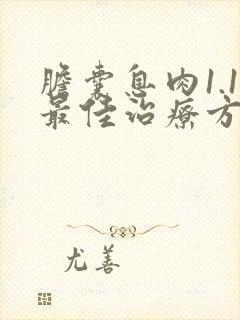 膽囊息肉1.1
最佳治療方
尤善